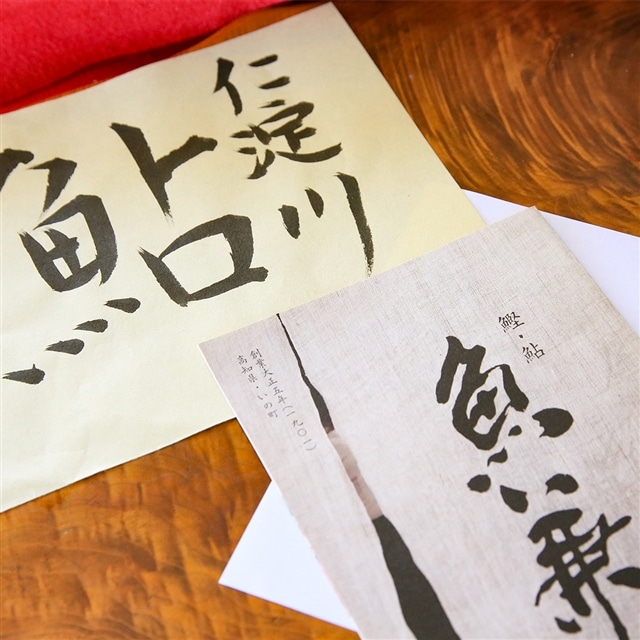 仁淀川
鮎
鰹・鮎
魚兼
創業大正五年(一九〇一)
高知県・いの町